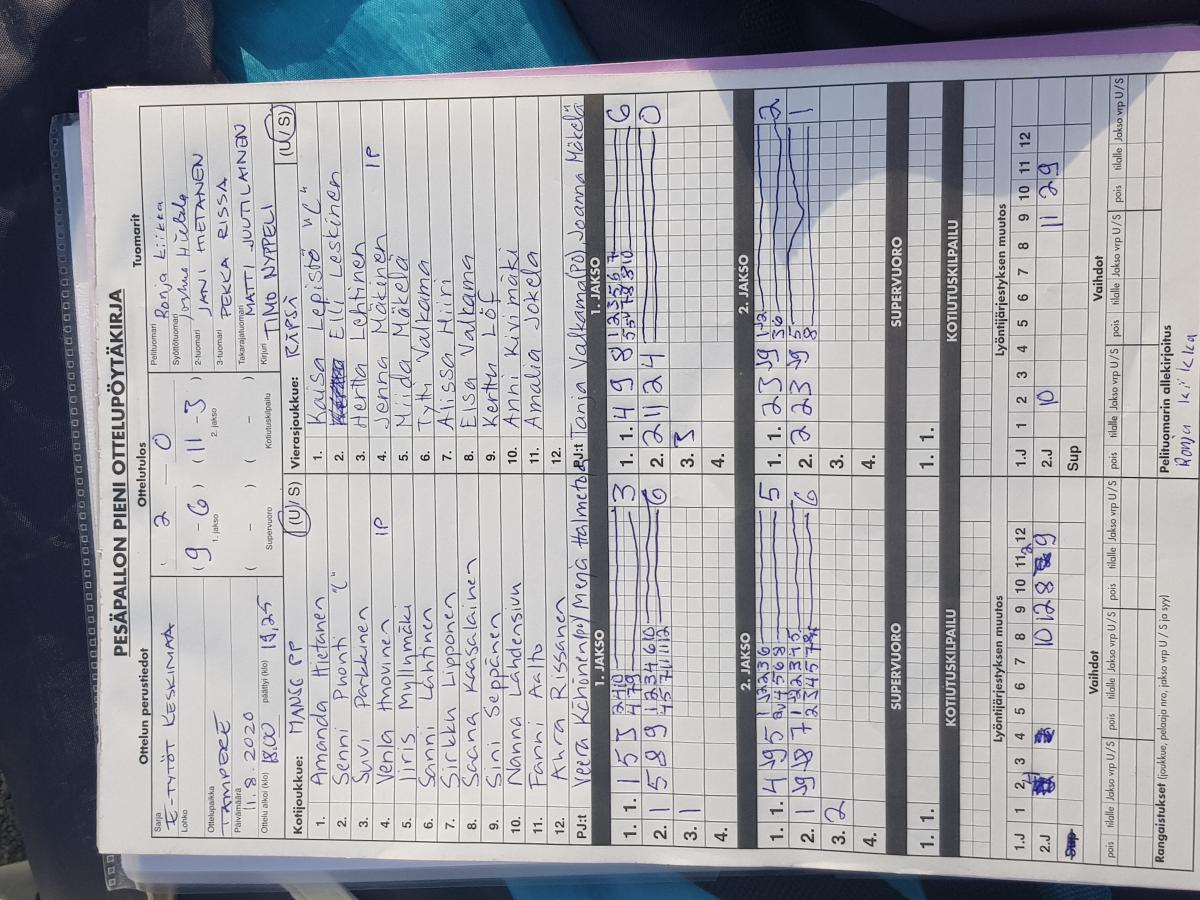 PESÄPALLON PIENI OTTELUPÖYTÄKIRJA
Ottelun perustiedot
Ottelutulos
Tuomarit
Sarja
E-TYTÖT KESKIMAA
Lohko
Ottelupaikka
TAMPERE
Päivämäärä
11.8.2020
Ottelu alkoi (klo) 18.00 päättyi (klo) 19,25
( 2 – 0
( 9 - 6 ) ( 11 - 3 )
1. jakso 2. jakso
( - ) ( - )
Supervuoro Kotiutuskilpailu
Pelituomari Ronja Liikka
Syöttötuomari
2-tuomari JANI HIETANEN
3-tuomari PEKKA RISSA
Takarajatuomari MATTI JUUTILAINEN
Kirjuri TIMO NYPPELI
Kotijoukkue: MANSE PP (U/S)
1. Amanda Hietanen
2. Senni Puonti "C"
3. Suvi Parkkinen
4. Venla Ihovinen IP
5. Iiris Myllymäki
6. Sanni Lähtinen
7. Sirkku Lipponen
8. Saana Kaasalainen
9. Sini Seppänen
10. Nanna Lahdensivu
11. Fanni Aalto
12. Ahra Rissanen
PJ:t Veera Köhönen(pj) Merja Halmetoja
Vierasjoukkue: RÄPSÄ (U/S)
1. Kaisa Lepistö "C"
2. Elli Leskinen
3. Hertta Lehtinen
4. Jenna Mäkinen IP
5. Miida Mäkelä
6. Tytti Valkama
7. Alissa Hiiri
8. Elsa Valkama
9. Kerttu Löf
10. Anni Kivimäki
11. Amalia Jokela
12.
PJ:t Tanja Valkama(PJ), Joanna Mäkelä
1. JAKSO
1. 1. 1 5 3 3
2. 1 5 8 9 6
3. 1
4.
1. JAKSO
1. 1. 4 9 8 6
2. 2 11 2 4 0
3. 3
4.
2. JAKSO
1. 1. 4 5 5
2. 1 6
3. 2
4.
2. JAKSO
1. 1. 2 3 2
2. 2 2 3 1
3.
4.
SUPERVUORO
1. 1.
SUPERVUORO
1. 1.
KOTIUTUSKILPAILU
KOTIUTUSKILPAILU
Lyöntijärjestyksen muutos
1.J 1 2 3 4 5 6 7 8 9 10 11 12
2.J 10 12 8 9
Lyöntijärjestyksen muutos
1.J 1 2 3 4 5 6 7 8 9 10 11 12
2.J 10 11 2 9
Sup
Vaihdot
pois tilalle Jakso vrp U/S pois tilalle Jakso vrp U/S pois tilalle Jakso vrp U/S
Vaihdot
pois tilalle Jakso vrp U/S pois tilalle Jakso vrp U/S pois tilalle Jakso vrp U/S
Rangaistukset (joukkue, pelaaja nro, jakso vrp U / S ja syy)
Pelituomarin allekirjoitus